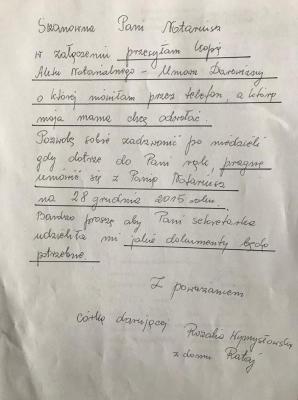 Szanowna Pani Notariusz
w załączeniu przesyłam kopię
Aktu Notarialnego - Umowa Darowizny
o której mówiłam przez telefon, a którą
moja mama chce odwołać.
Pozwolę sobie zadzwonić po niedzieli
gdy dotrze do Pani rąk, pragnę
umówić się z Panią Notariusz
na 28 grudnia 2015 roku.
Bardzo proszę aby Pani sekretarka
udzieliła mi jakie dokumenty będą
potrzebne.
Z poważaniem
córka darującej Rozalia
z domu Rataj